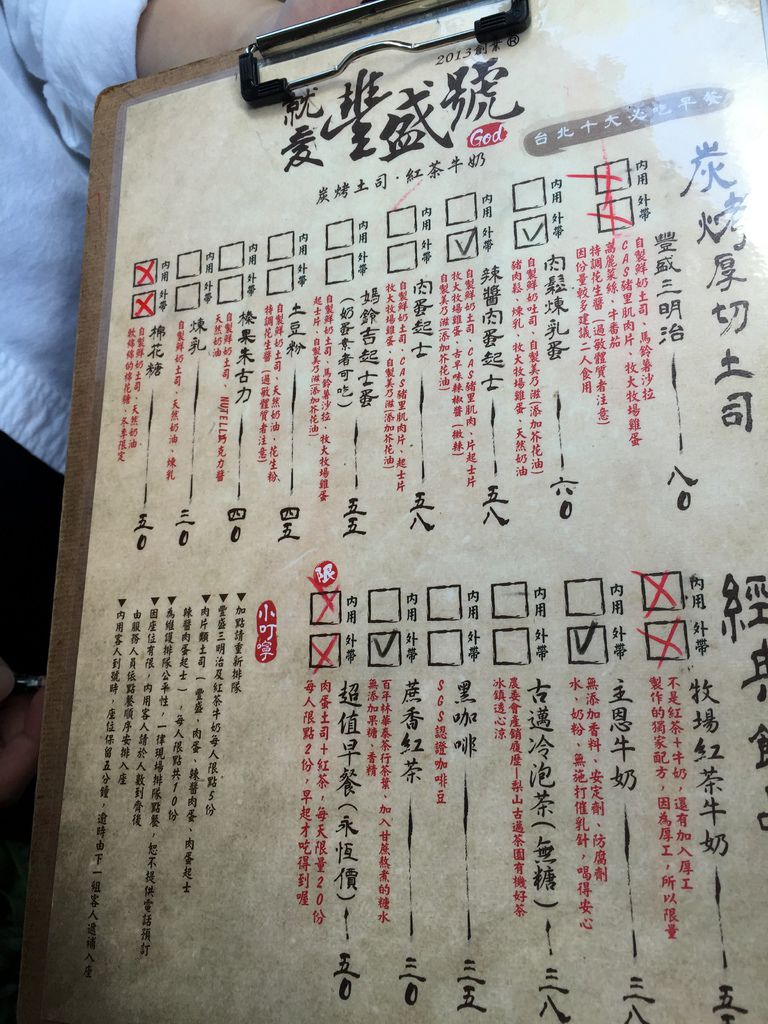 2013創業®
就愛豐盛號
God
炭烤土司·紅茶牛奶
台北十大必吃早餐
炭烤厚切土司
內用 外帶
豐盛三明治 八0
自製鮮奶土司、馬鈴薯沙拉
CAS豬里肌肉片、牧大牧場雞蛋
高麗菜絲、牛番茄
特調花生醬(過敏體質者注意)
因份量較多建議二人食用
內用 外帶
肉鬆煉乳蛋 六0
自製鮮奶吐司、自製美乃滋(添加芥花油)
豬肉鬆、煉乳、牧大牧場雞蛋、天然奶油
內用 外帶
辣醬肉蛋起士 五八
自製鮮奶土司、CAS豬里肌肉片、起士片
牧大牧場雞蛋、古早味辣椒醬(微辣)
自製美乃滋(添加芥花油)
內用 外帶
肉蛋起士 五八
自製鮮奶土司、CAS豬里肌肉片、起士片
牧大牧場雞蛋、自製美乃滋(添加芥花油)
內用 外帶
媽鈴吉起士蛋 五五
(奶蛋素者可吃)
自製鮮奶土司、馬鈴薯沙拉、牧大牧場雞蛋
起士片、自製美乃滋(添加芥花油)
內用 外帶
土豆粉 四五
自製鮮奶土司、天然奶油、花生粉、
特調花生醬(過敏體質者注意)
內用 外帶
榛果朱古力 四0
自製鮮奶土司、NUTELLA巧克力醬
天然奶油
內用 外帶
煉乳 三0
自製鮮奶土司、天然奶油、煉乳
內用 外帶
棉花糖 五0
自製鮮奶土司、天然奶油、
軟綿綿的棉花糖、冬季限定
經典飲品
內用 外帶
牧場紅茶牛奶
不是紅茶+牛奶,還有加入厚工
製作的獨家配方,因為厚工,所以限量
內用 外帶
主恩牛奶 三八
無添加香料、安定劑、防腐劑
水、奶粉、無施打催乳針,喝得安心
內用 外帶
古邁冷泡茶(無糖) 三八
農委會產銷履歷—梨山古邁茶園有機好茶
冰鎮透心涼
內用 外帶
黑咖啡 三五
SGS認證咖啡豆
內用 外帶
蔗香紅茶 三0
百年林華泰茶行茶葉、加入甘蔗熬煮的糖水
無添加果糖、香精
限
內用 外帶
超值早餐(永恆價) 五0
肉蛋土司+紅茶,每天限量20份
每人限點2份,早起才吃得到喔
小叮嚀
▼加點請重新排隊
▼豐盛三明治及紅茶牛奶每人限點5份
▼肉片類土司(豐盛、肉蛋、辣醬肉蛋、肉蛋起士
辣醬肉蛋起士),每人限點共10份
▼為維護排隊公平性,一律現場排隊點餐,恕不提供電話預訂
▼因座位有限,內用客人請於人數到齊後
由服務人員依點餐順序安排入座
▼內用客人到號時,座位保留五分鐘,逾時由下一組客人遞補入座